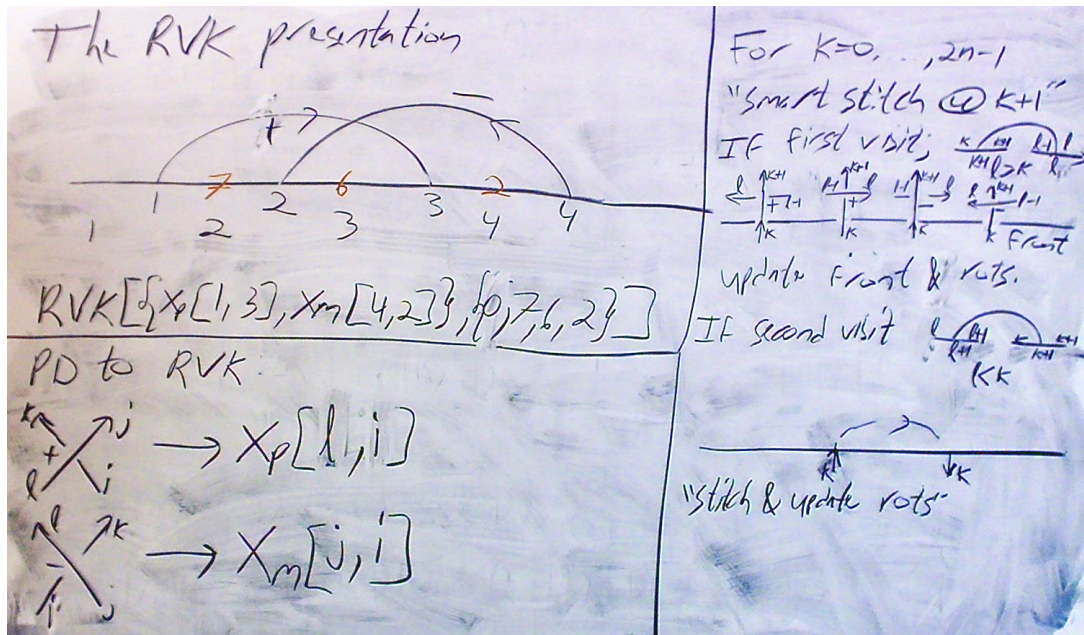 The RVK presentation
+ −
7 6 2
1 2 3 4
1 2 3 4
RVK[{Xp[1,3], Xm[4,2]}, {0,7,6,2}]
PD to RVK
k j
+ → Xp[l,i]
l i
l k
− → Xm[j,i]
i j
For k=0,...,2n-1
"smart stitch @ k+1"
If first visit;
k k+1 l-1 l
k+1 l>k l
l k+1 l-1 k+1 l k+1 l l k+1 l-1
k k k k Front
update front & rots.
If second visit
l l+1 k k+1
l+1 k+1
l<k
k k
"stitch & update rots"